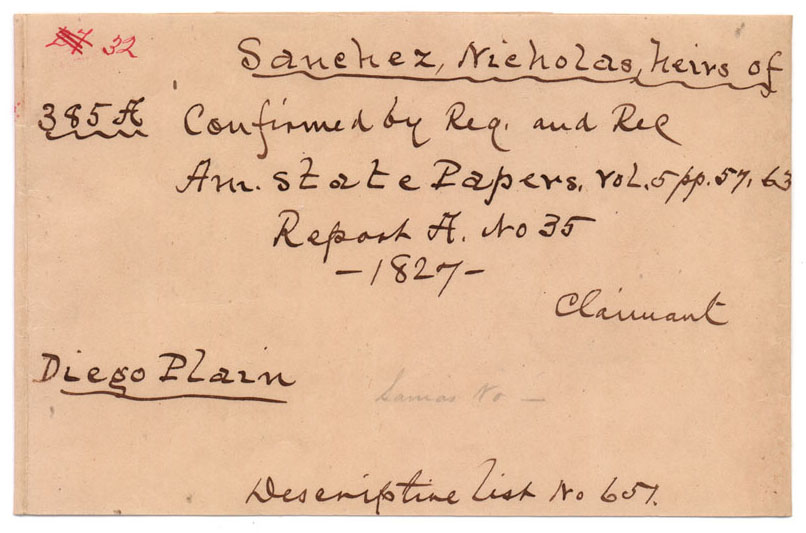 32
Sanchez, Nicholas, heirs of
385 A Confirmed by Reg. and Rec
Am. State Papers. vol. 5 pp. 57, 63
Report A. No 35
-1827-
Claimant
Diego Plain
No -
Descriptive list No 651.